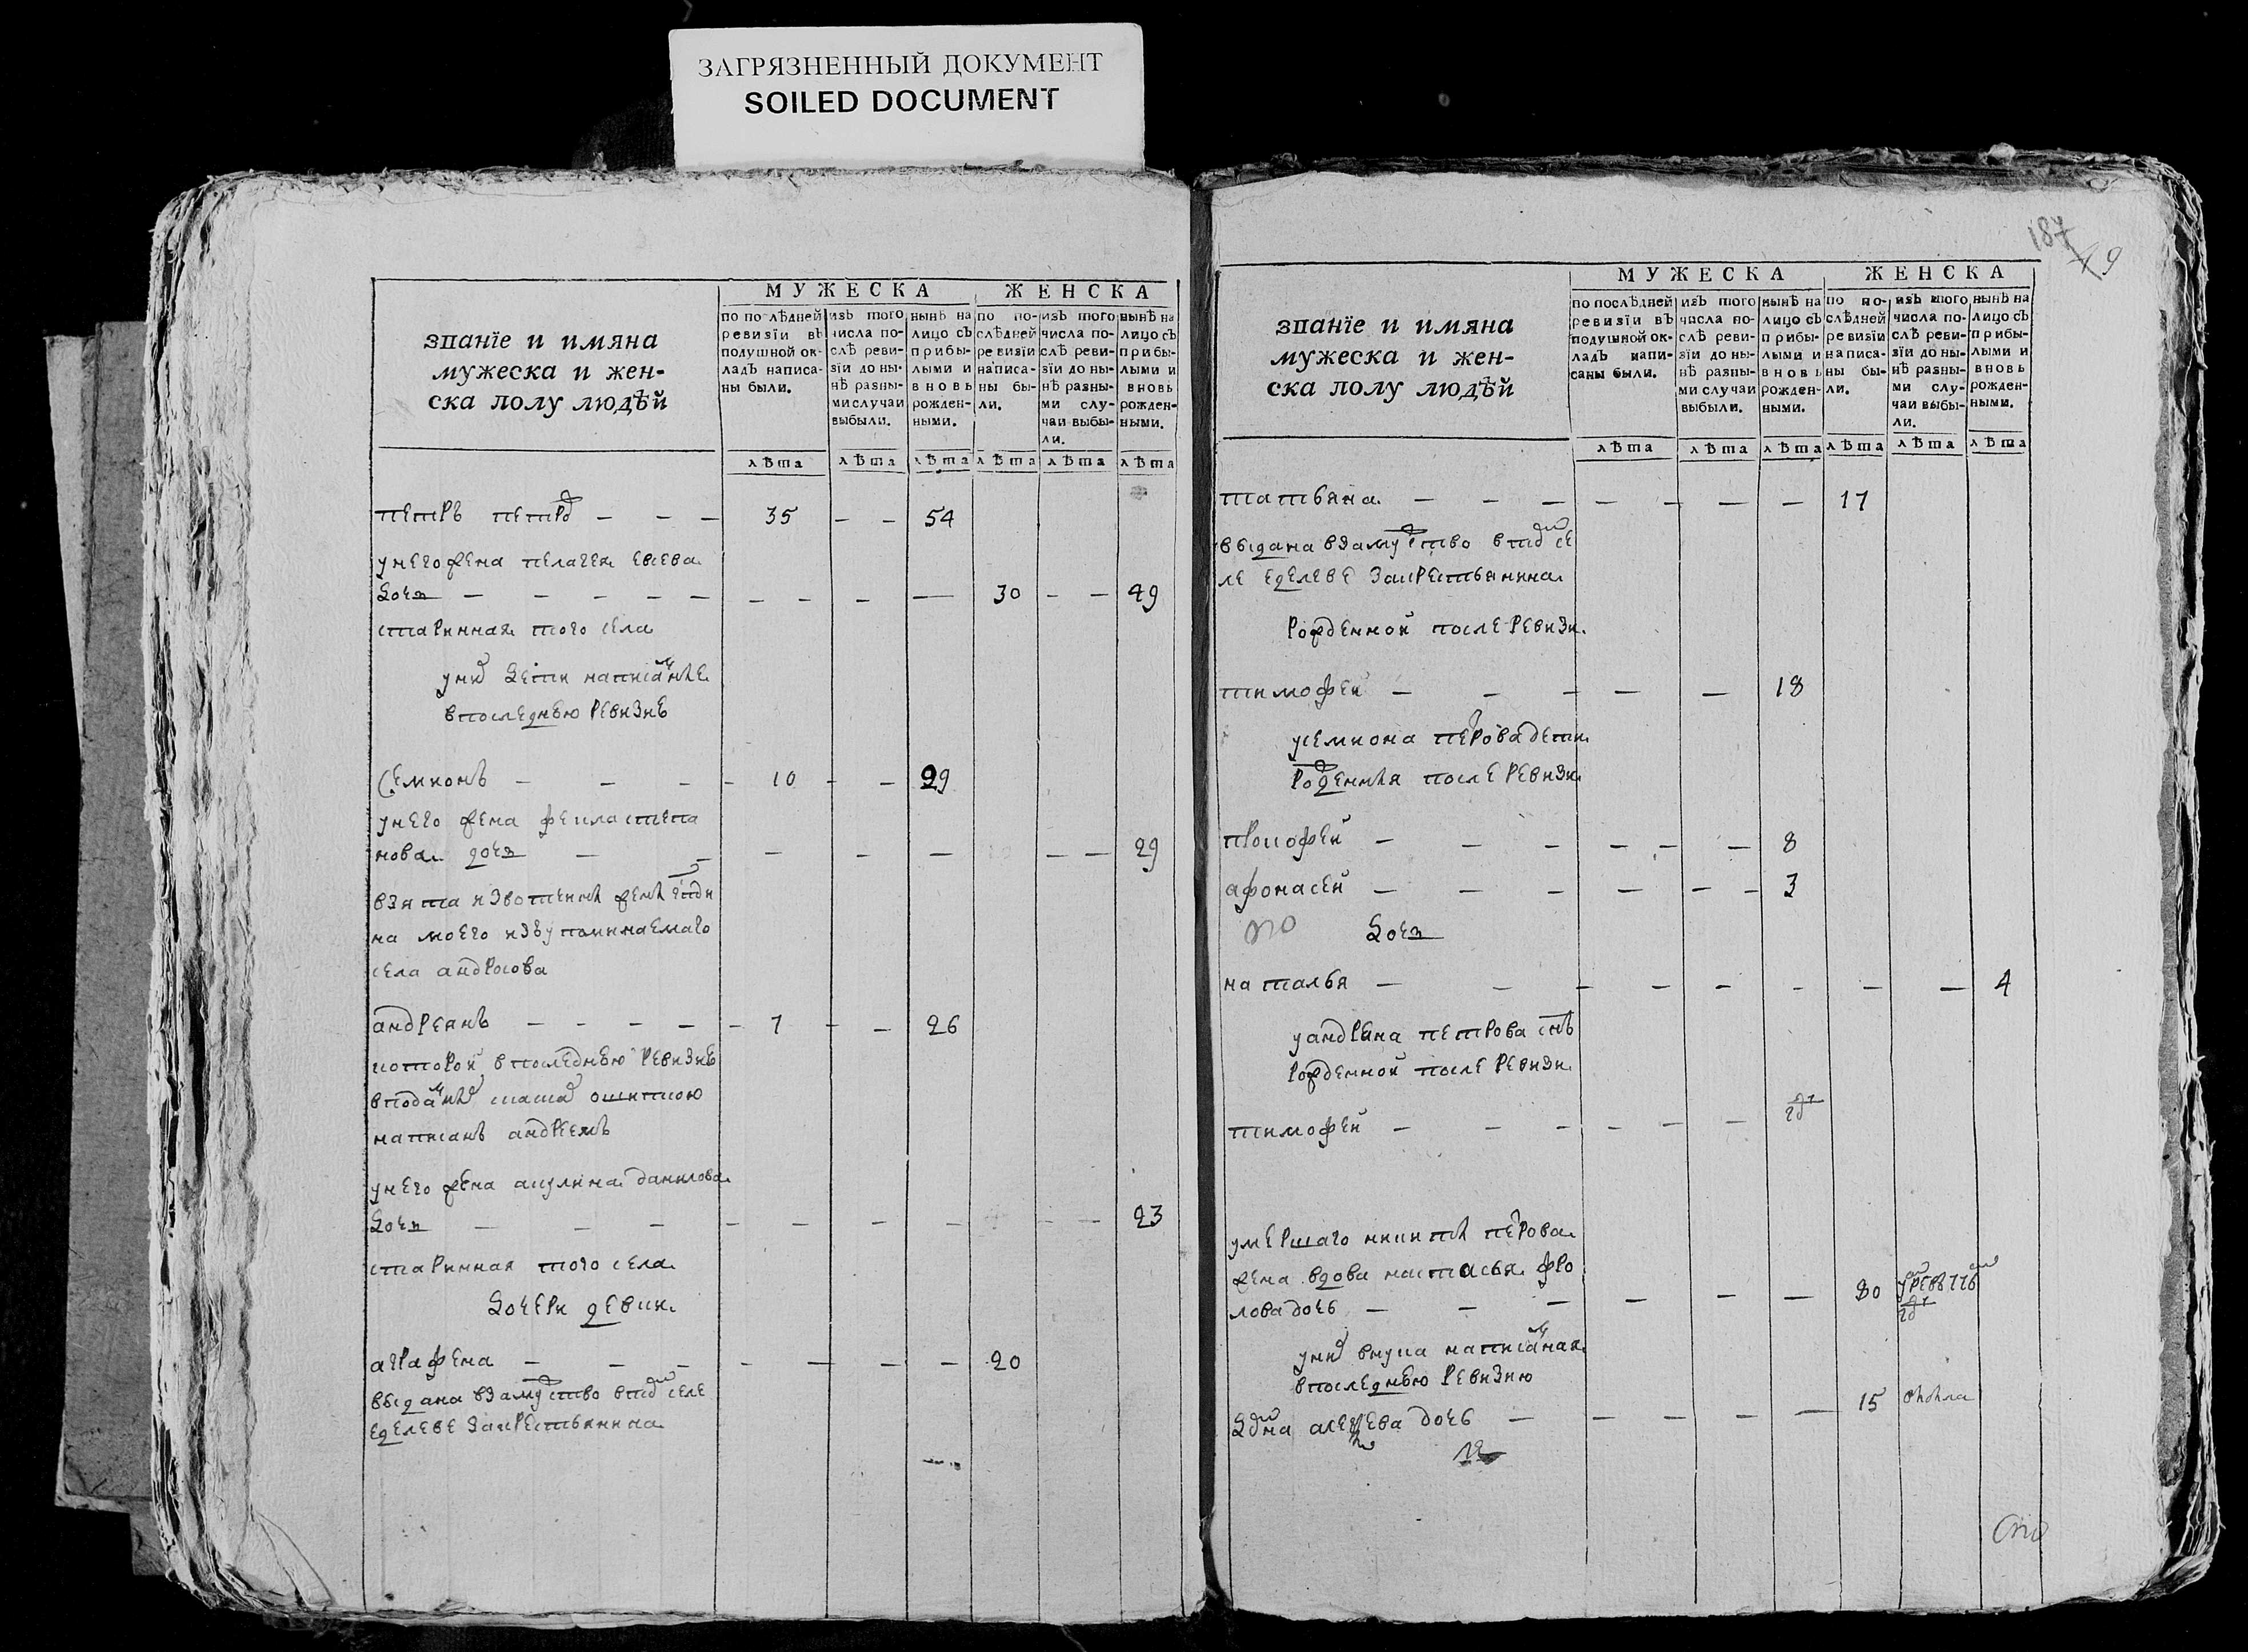 ЗАГРЯЗНЕННЫЙ ДОКУМЕНТ
SOILED DOCUMENT
званїе и имяна
мужеска и жен-
ска полу людѣй
МУЖЕСКА
ЖЕНСКА
по послѣдней ревизїи въ подушной ок-ладъ написа-ны были.
изъ того числа по-слѣ реви-зїи до ны-нѣ разны-ми случаи выбыли.
нынѣ на лицо съ прибы-лыми и вновь рожден-ными.
по по-слѣдней ревизїи написа-ны бы-ли.
изъ того числа по-слѣ реви-зїи до ны-нѣ разны-ми слу-чаи выбы-ли.
нынѣ на лицо съ прибы-лыми и вновь рожден-ными.
лѣта лѣта лѣта лѣта лѣта лѣта
петръ петров — — — 35 — — 54
унего жена пелагея евсева
дочь — — — — — — — — — 30 — — 49
старинная того села
уних дети написанные
впоследнюю ревизию
Семионъ — — — 10 — — 29
унего жена фекла степа
нова дочь — — — — — — — 29
взята
на моего изъупоминаемаго
села андросова
андреянъ — — — — — 7 — — 26
которой впоследнюю ревизию
написанъ андреемъ
унего жена акулина данилова
дочь — — — — — — — — — 23
старинная того села
дочери девки
аграфена — — — — — — — 20
выдана взамужство в селе
еделеве закрестьянина
187
49
званїе и имяна
мужеска и жен-
ска полу людѣй
МУЖЕСКА
ЖЕНСКА
по послѣдней ревизїи въ подушной ок-ладъ напи-саны были.
изъ того числа по-слѣ реви-зїи до ны-нѣ разны-ми случаи выбыли.
нынѣ на лицо съ прибы-лыми и вновь рожден-ными.
по по-слѣдней ревизїи написа-ны бы-ли.
изъ того числа по-слѣ реви-зїи до ны-нѣ разны-ми слу-чаи выбы-ли.
нынѣ на лицо съ прибы-лыми и вновь рожден-ными.
лѣта лѣта лѣта лѣта лѣта лѣта
татьяна — — — — — — — 17
выдана взамужство в се
ле еделеве закрестьянина
рожденной после ревизи
тимофей — — — — — 18
усемиона петрова дети
рожденныя после ревизи
прокофей — — — — — — 8
афонасей — — — — — — 3
дочь
наталья — — — — — — — — 4
уандреяна петрова снъ
рожденной после ревизи
тимофей — — — — — —
умершаго никиты петрова
жена вдова настасья фро
лова дочь — — — — — — 80
уних внука написанная
впоследнюю ревизию
алексеева дочь — — — — — 15